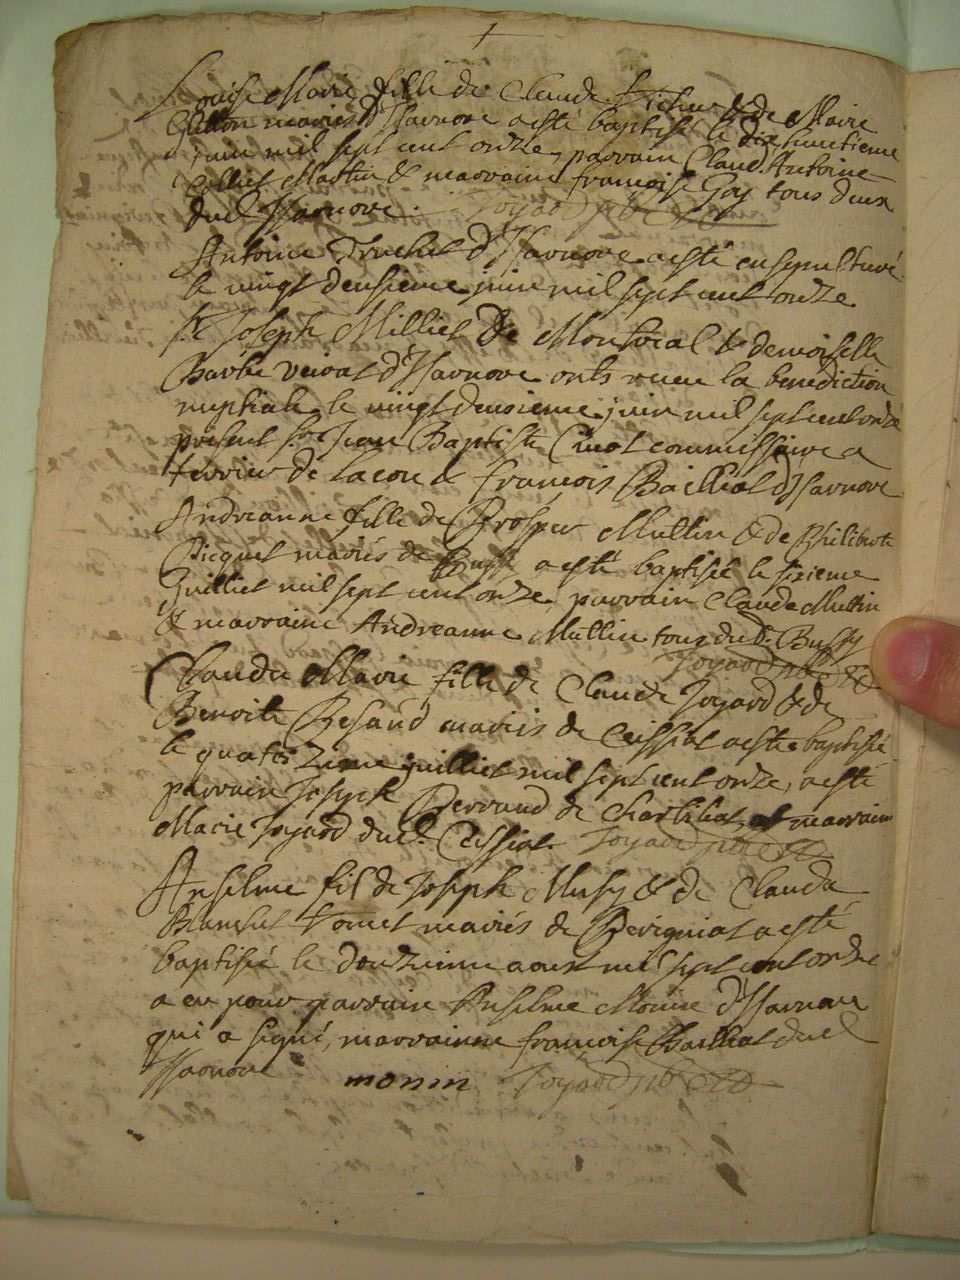 Louise Marie fille de Claude Vicher & de Marie
Guitton mariés d'Isarnore a esté baptisée le dix huictieme
juin mil sept cent onze, parrain Claud. Antoine
Colliet Mattin & marraine françoise Goy tous deux
dud. Isarnore. Joyard ptre
Antoine Truchet d'Isarnore a esté ensepulturé
le vingt deusieme juin mil sept cent onze
Sr. Joseph Milliet de Montreal & demoiselle
Barbe Vuirat d'Isarnore onts receu la benediction
nuptiale le vingt deusieme juin mil sept cent onze
present Sr. Jean Baptiste commissaire a
terrier de & francois Bailliat d'Isarnore
Andreanne fille de Prosper Muttin & de Philiberte
Picquet mariés de Bussy a esté baptisée le sixieme
Juilliet mil sept cent onze parrain Claude Muttin
& marraine Andreanne Muttin tous dud. Bussy
Joyard ptre
Claudie Marie fille de Claude Joyard & de
Benoite Resaud mariés de Ceissiat a esté baptisée
le quatorzieme juilliet mil sept cent onze, a esté
parrain Joseph Berraud de Charlillat, et marraine
Marie Joyard dud. Ceissiat. Joyard ptre
Anselme fils de Joseph Musy & de Clauda
Blanchet Tomet mariés de Perigniat a esté
baptisé le douzieme aoust mil sept cent onze
a eu pour parrain Anselme Monin d'Isarnore
qui a signé, marrainne françoise Bailliat dud
Isarnore monin Joyard ptre